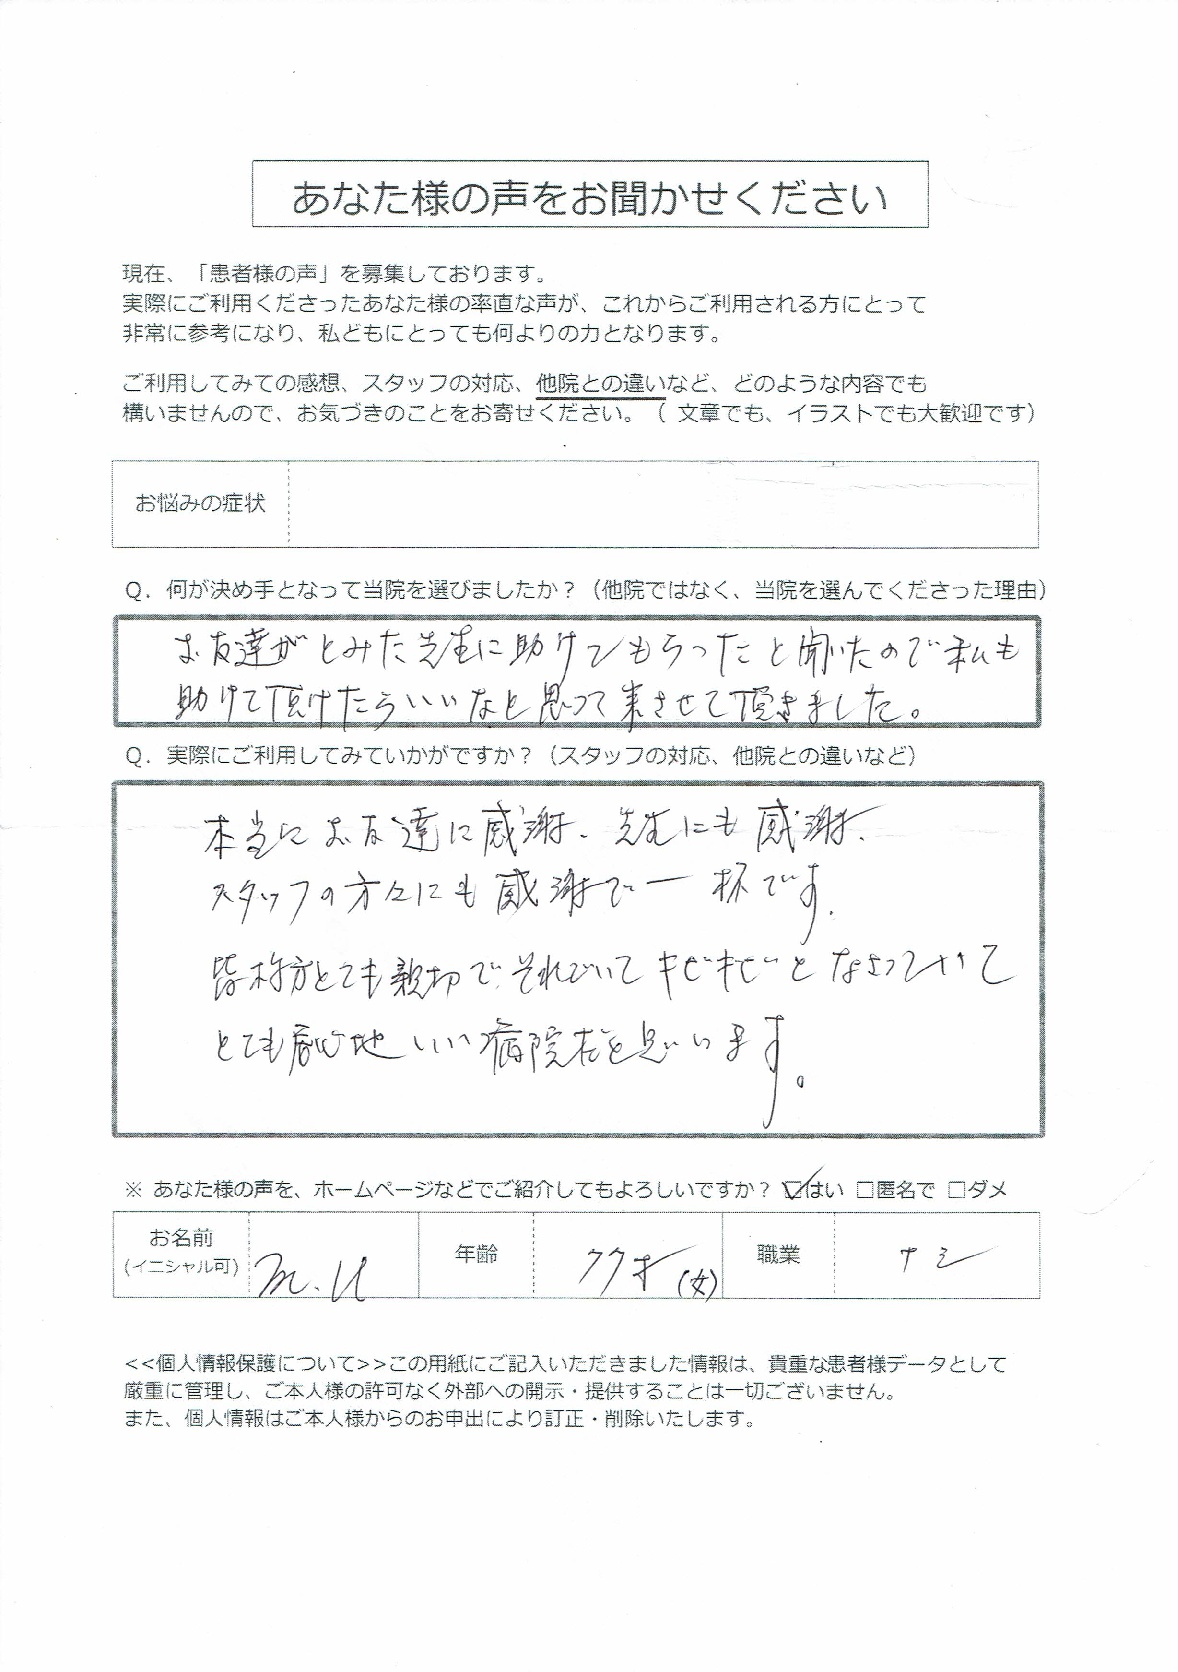 あなた様の声をお聞かせください
現在、「患者様の声」を募集しております。
実際にご利用くださったあなた様の率直な声が、これからご利用される方にとって
非常に参考になり、私どもにとっても何よりの力となります。
ご利用してみての感想、スタッフの対応、他院との違いなど、どのような内容でも
構いませんので、お気づきのことをお寄せください。（ 文章でも、イラストでも大歓迎です）
お悩みの症状
Q．何が決め手となって当院を選びましたか？（他院ではなく、当院を選んでくださった理由）
お友達がとみた先生に助けてもらったと聞いたので私も
助けて頂けたらいいなと思って来させて頂きました。
Q．実際にご利用してみていかがですか？（スタッフの対応、他院との違いなど）
本当にお友達に感謝、先生にも感謝、
スタッフの方々にも感謝で一杯です。
皆様方とても親切で、それでいてキビキビとなさっていて
とても居心地いい病院だと思います。
※ あなた様の声を、ホームページなどでご紹介してもよろしいですか？ ☑はい □匿名で □ダメ
お名前 (イニシャル可) M.U 年齢 77才(女) 職業 ナシ
<<個人情報保護について>>この用紙にご記入いただきました情報は、貴重な患者様データとして
厳重に管理し、ご本人様の許可なく外部への開示・提供することは一切ございません。
また、個人情報はご本人様からのお申出により訂正・削除いたします。